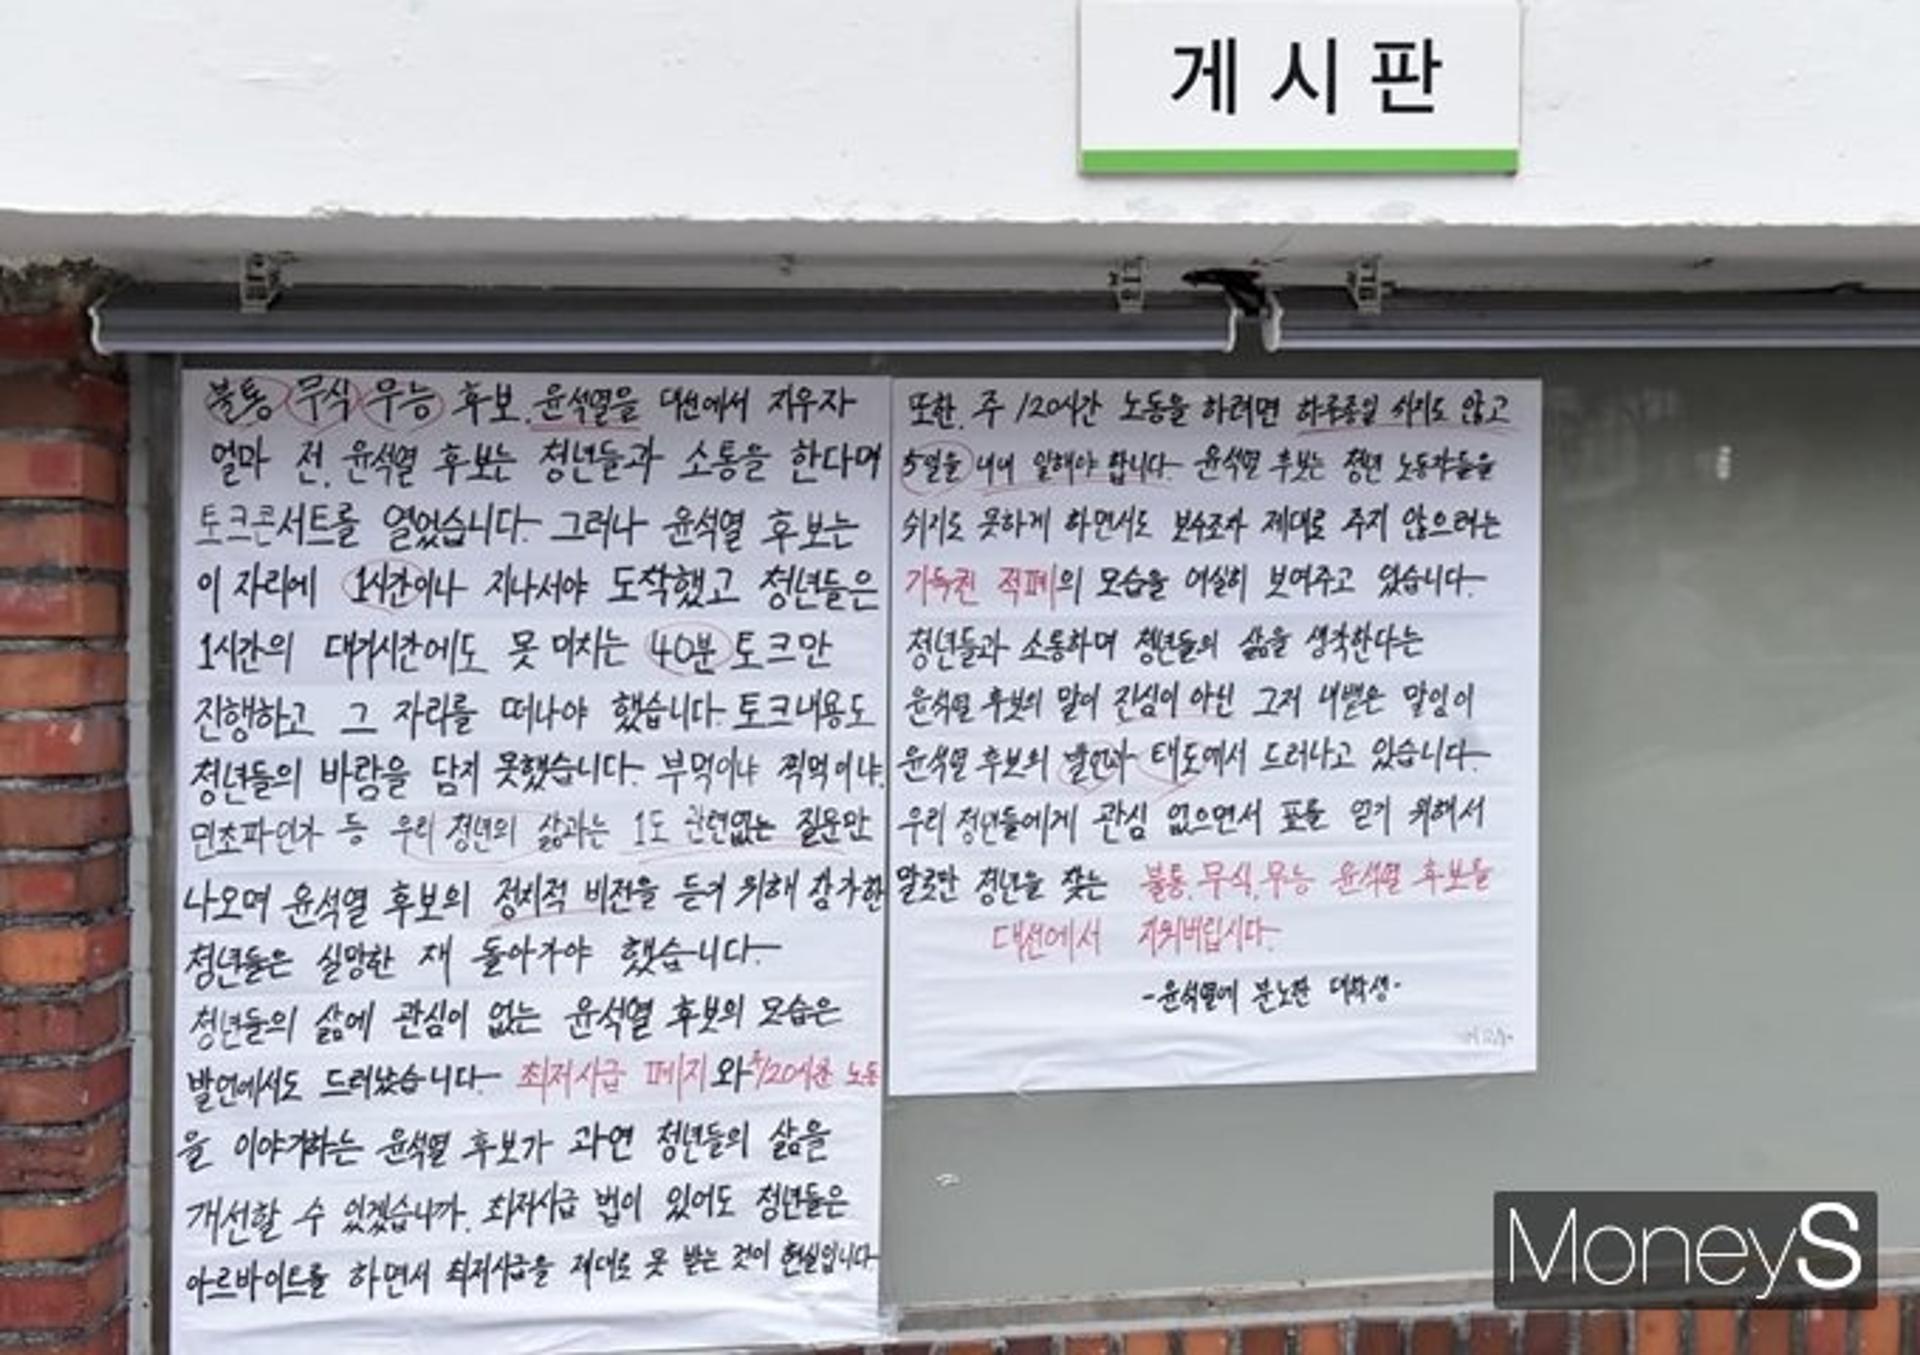 게시판
불통 무식 무능 후보, 윤석열을 대선에서 지우자
얼마 전, 윤석열 후보는 청년들과 소통을 한다며
토크콘서트를 열었습니다. 그러나 윤석열 후보는
이 자리에 1시간이나 지나서야 도착했고 청년들은
1시간의 대기시간에도 못 미치는 40분 토크만
진행하고 그 자리를 떠나야 했습니다. 토크내용도
청년들의 바람을 담지 못했습니다. 부먹이냐 찍먹이냐,
민초파인가 등 우리 청년의 삶과는 1도 관련없는 질문만
나오며 윤석열 후보의 정치적 비전을 듣기 위해 참가한
청년들은 실망한 채 돌아가야 했습니다.
청년들의 삶에 관심이 없는 윤석열 후보의 모습은
발언에서도 드러났습니다. 최저시급 폐지와 주120시간 노동
을 이야기하는 윤석열 후보가 과연 청년들의 삶을
개선할 수 있겠습니까. 최저시급 법이 있어도 청년들은
아르바이트를 하면서 최저시급을 제대로 못 받는 것이 현실입니다.
또한, 주 120시간 노동을 하려면 하루종일 쉬지도 않고
5일을 내내 일해야 합니다. 윤석열 후보는 청년 노동자들을
쉬지도 못하게 하면서도 보수조차 제대로 주지 않으려는
기득권 적폐의 모습을 여실히 보여주고 있습니다.
청년들과 소통하며 청년들의 삶을 생각한다는
윤석열 후보의 말이 진심이 아닌 그저 내뱉은 말임이
윤석열 후보의 발언과 태도에서 드러나고 있습니다.
우리 청년들에게 관심 없으면서 표를 얻기 위해서
말로만 청년을 찾는 불통, 무식, 무능 윤석열 후보를
대선에서 지워버립시다.
-윤석열에 분노한 대학생-
MoneyS